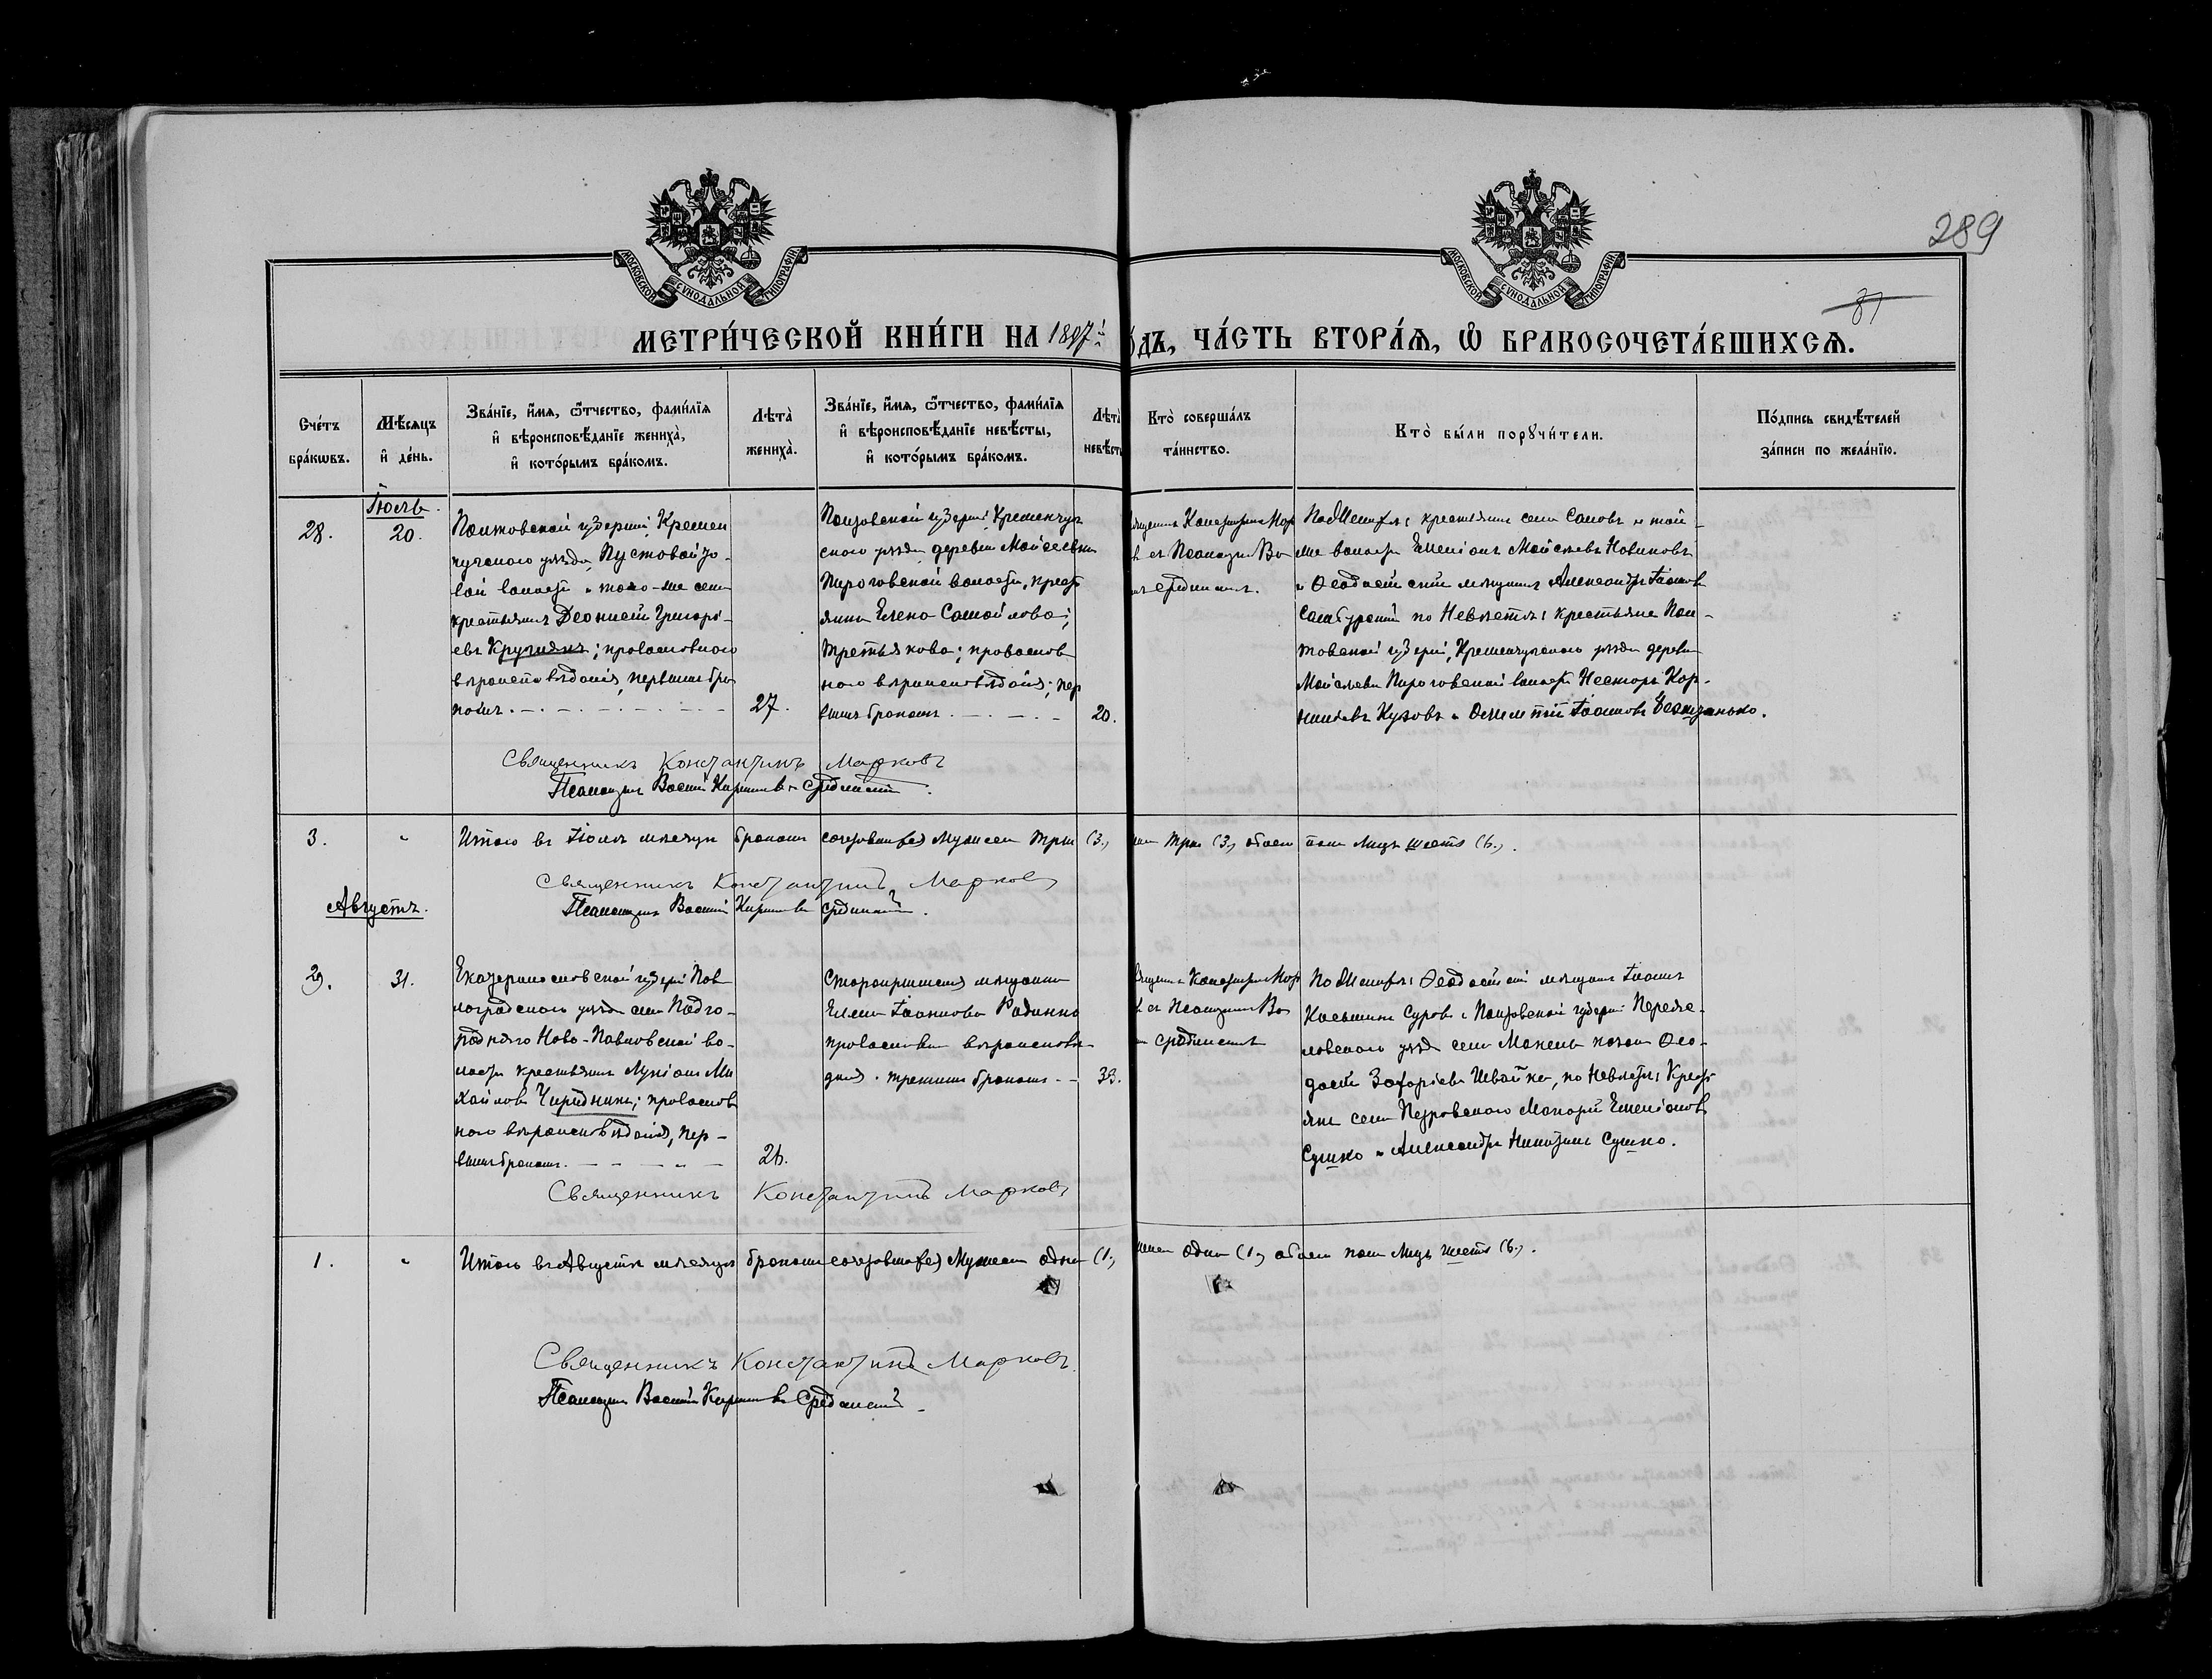 289
87
МОСКОВСКОЙ СѴНОДАЛЬНОЙ ТИПОГРАФІИ
МОСКОВСКОЙ СѴНОДАЛЬНОЙ ТИПОГРАФІИ
МЕТРИ́ЧЕСКОЙ КНИ́ГИ НА 1897 й
о́дъ, ЧА́СТЬ ВТОРА́Я, Ѡ БРАКОСОЧЕТА́ВШИХСЯ.
Сче́тъ бра́кѡвъ.
Мѣ́сяцъ и҆ де́нь.
Зва́нїе, и҆́мя, ѻ҆́тчество, фами́лїя
и҆ вѣроисповѣ́данїе жениха̀,
и҆ кото́рымъ бра́комъ.
Лѣта̀ жениха̀.
Зва́нїе, и҆́мя, ѻ҆́тчество, фами́лїя
и҆ вѣроисповѣ́данїе невѣ́сты,
и҆ кото́рымъ бра́комъ.
Лѣта̀ невѣ́сты
Кто̀ соверша́лъ та́инство.
Кто̀ бы́ли порꙋчи́тели.
По́дпись свидѣ́телей за́писи по жела́нїю.
Іюль.
28.
20.
Полтовской губерніи, Кремен
чугскаго уѣзда, Пустовойто-
вой волости и того-же села
крестьянинъ Діонисій Григорі-
евъ Кругликъ; православнаго
вѣроисповѣданія, первымъ бра
комъ.
27.
Полтовской губерніи, Кременчуг
скаго уѣзда деревни Мойсеевки
Пироговской волости, крест
янка Елена Самойлова
Третьякова; православ
наго вѣроисповѣданія; пер
вымъ бракомъ.
20.
ященникъ Константинъ Мар
въ съ Псаломщ. Ва
Срединскимъ.
По Женихѣ: крестьяне села Саловъ и той-
же волости Емеліанъ Мойсеевъ Новиковъ
и Ѳеодосійскій мѣщанинъ Александръ Іоановъ
Самбурскій по Невѣстѣ: крестьяне Пол-
товской губерніи, Кременчугскаго уѣзда деревни
Мойсеевки Пироговской волости Несторъ Кор-
ниліевъ Іоановъ
Священникъ Константинъ Марковъ
Псаломщикъ Василій Кириловъ Срединскій.
3.
Итого въ Іюлѣ мѣсяцѣ бракомъ сочетавших(ся) мужеска три (3.) женск три (3.) обоего пола лицъ шесть (6.).
Священникъ Константинъ Марковъ
Псаломщикъ Василій Кириловъ Срединскій.
Августъ.
29.
31.
Екатеринославской губерніи Пав
лоградскаго уѣзда села Подго-
родняго Ново-Павловской во-
лости крестьянинъ Лукіанъ Ми
хайловъ Чередникъ; православ
наго вѣроисповѣданія, пер-
вымъ бракомъ.
26.
Старокрымская мѣщанка
Елена Іоаннова Радинко
православнаго вѣроисповѣ-
данія. третьимъ бракомъ.
33.
ященникъ Константинъ Мар
въ съ Псаломщикомъ Ва
Срединскимъ
По Женихѣ: Ѳеодосійскій мѣщанинъ Іоаннъ
Касьминъ Суровъ и Полтовской губерніи Переяс-
ловскаго уѣзда села козакъ Ѳео-
досій Захаріевъ Швайка, по Невѣстѣ: Крест
яне села Петровскаго Макарій Емеліановъ
Сушко и Александръ Никитинъ Сушко.
Священникъ Константинъ Марковъ
1.
Итого въ Августѣ мѣсяцѣ бракомъ сочетавших(ся) мужеска одна (1.) женска одна (1.) обоего пола лицъ шесть (6.).
Священникъ Константинъ Марковъ.
Псаломщикъ Василій Кириловъ Срединскій.